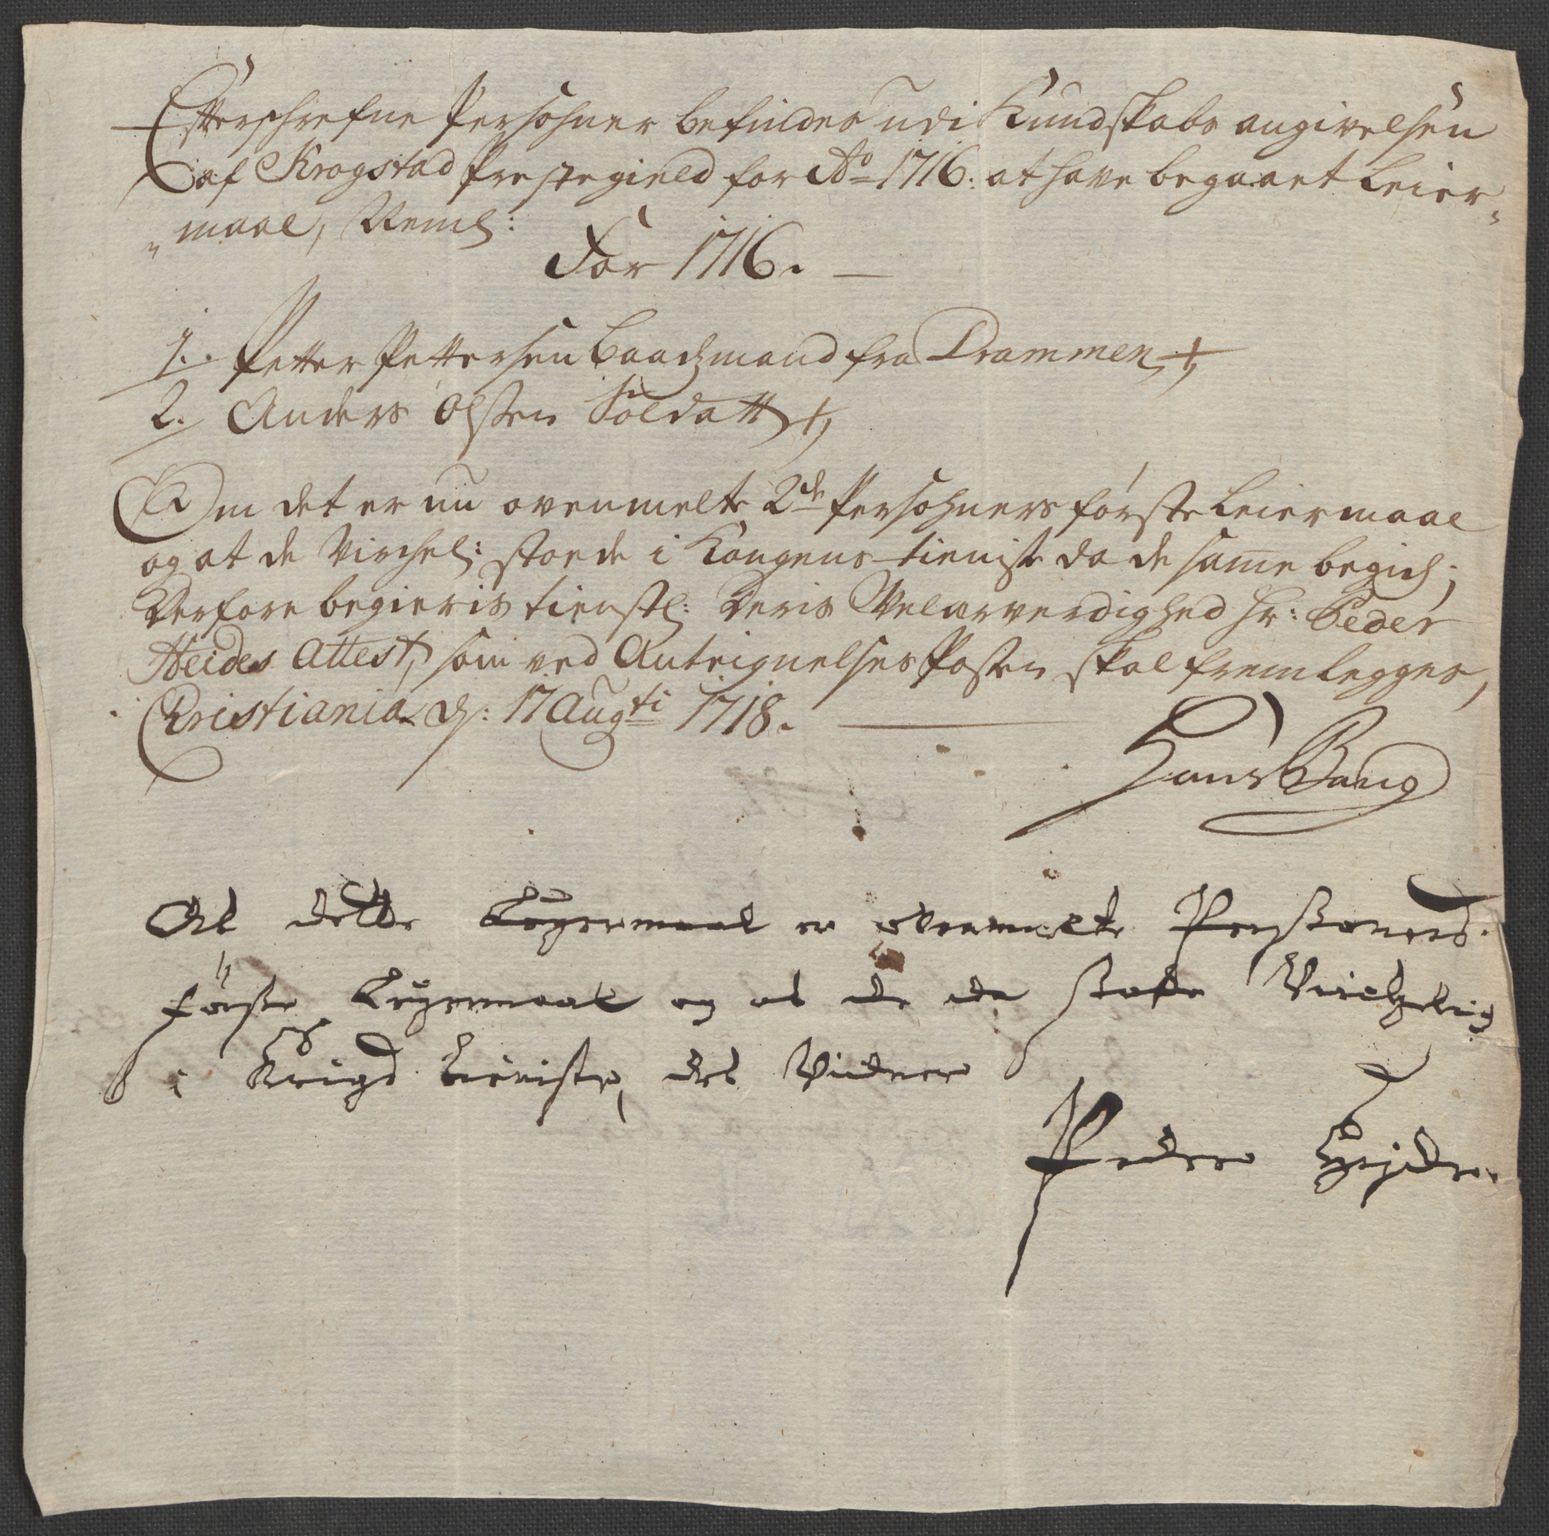 Efterschrefne Persohner befindes udi Kundskabs angivelsen
af Krogstad Prestegield for Ao 1716. at have begaaet Leier„
„maal, Neml:
For 1716.
1. Petter Pettersen Baadzmand fra Drammen,
2. Anders Olsen Soldatt,
Om det er nu ovenmelte 2de Persohners første Leiermaal
og at de Virchel: stoede i Kongens tieniste da de same begich;
Derfore begieris tienstl: Deris Velærverdighed Hr: Peder
Heides Attest, som ved Anteignelses Posten skal fremlegges,
Christiania d: 17 Augti 1718.
Hans Bang
At dette Leyermaal er ovenmelte Persioners
første Leyermaal og at de da stode Virchelig
i Krigs tieniste, det Vidner
Peder Hejde.